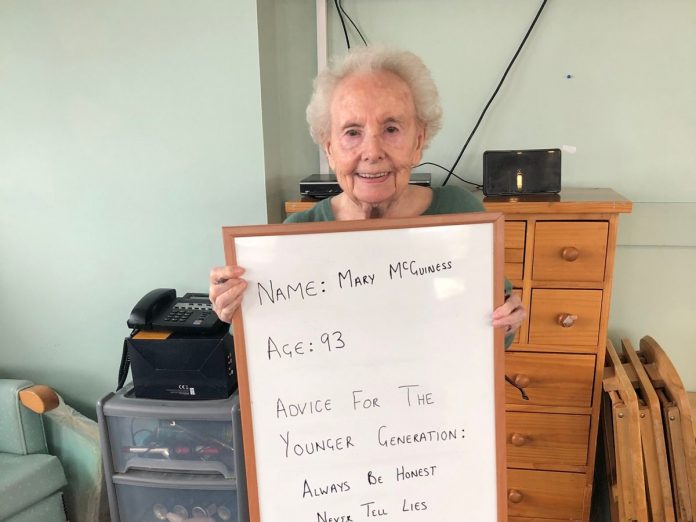 NAME: MARY McGUINESS
AGE: 93
ADVICE FOR THE
YOUNGER GENERATION:
ALWAYS BE HONEST
NEVER TELL LIES